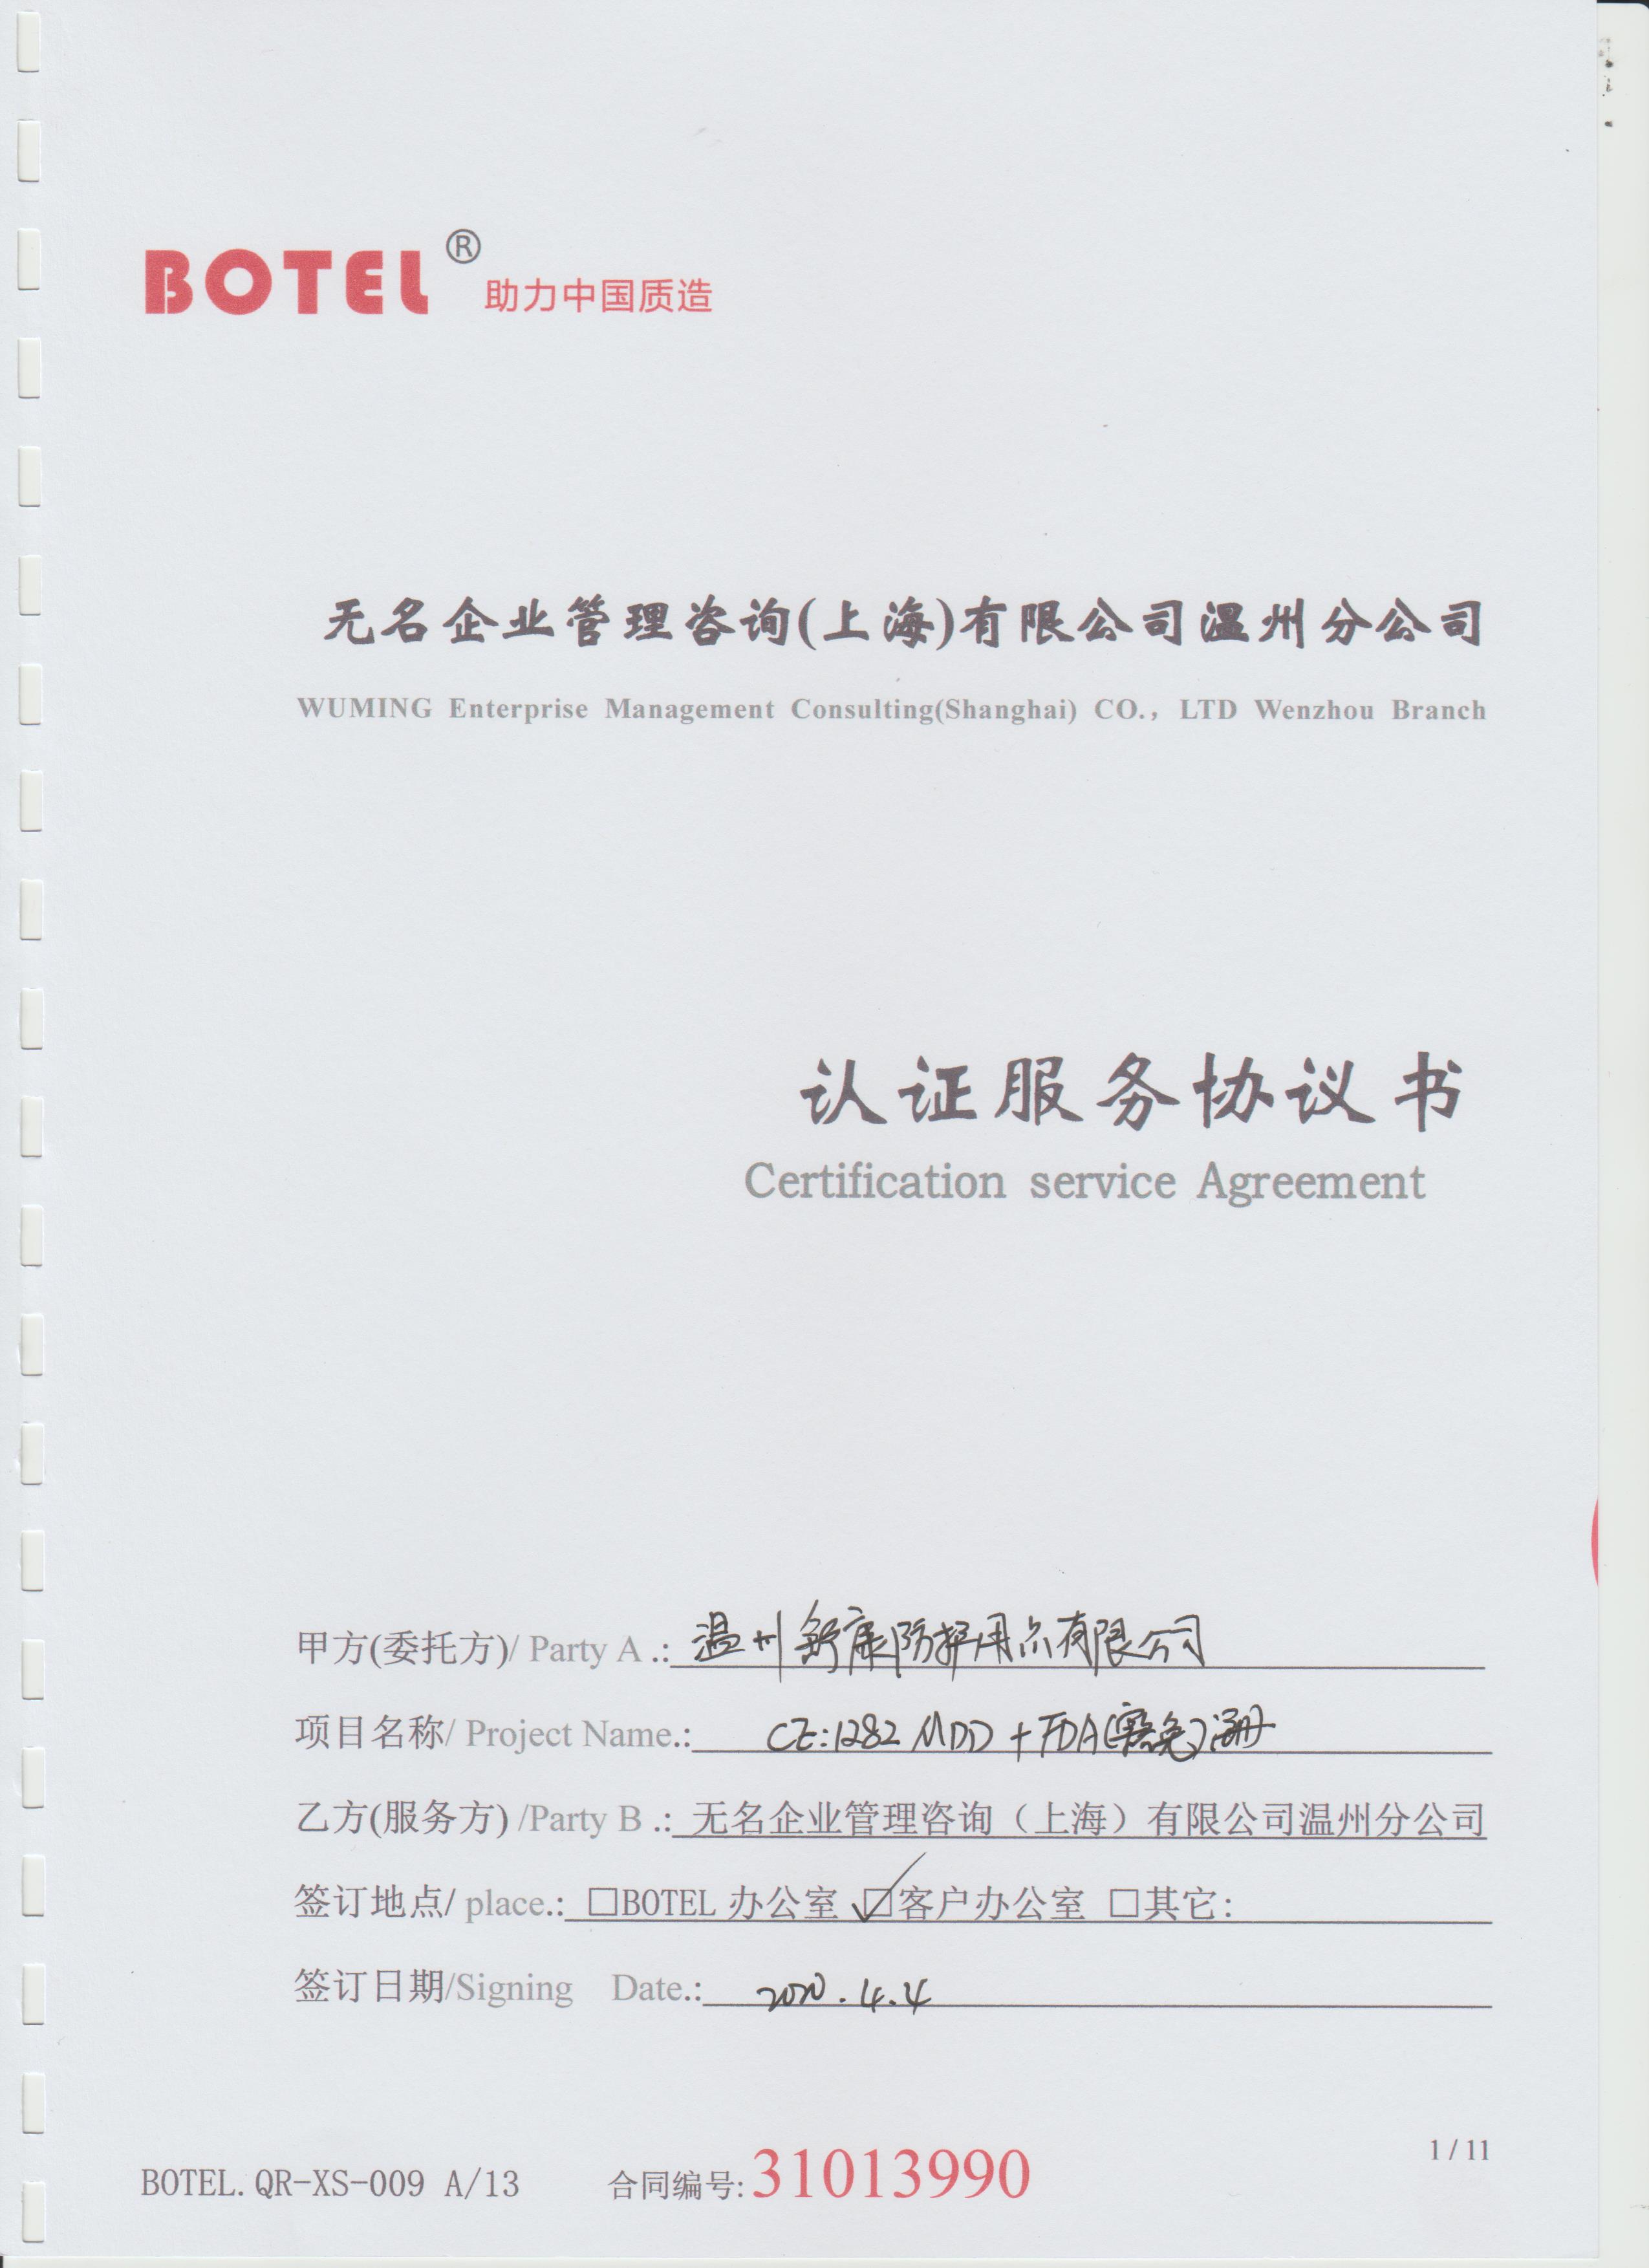 BOTEL® 助力中国质造
无名企业管理咨询(上海)有限公司温州分公司
WUMING Enterprise Management Consulting(Shanghai) CO., LTD Wenzhou Branch
认证服务协议书
Certification service Agreement
甲方(委托方)/ Party A .: 温州舒康防护用品有限公司
项目名称/ Project Name.: CE:1282 MDD + FDA(豁免)注册
乙方(服务方) /Party B .: 无名企业管理咨询（上海）有限公司温州分公司
签订地点/ place.: □BOTEL 办公室 ☑客户办公室 □其它:
签订日期/Signing Date.: 2020.4.4
1 / 11
BOTEL.QR-XS-009 A/13 合同编号: 31013990